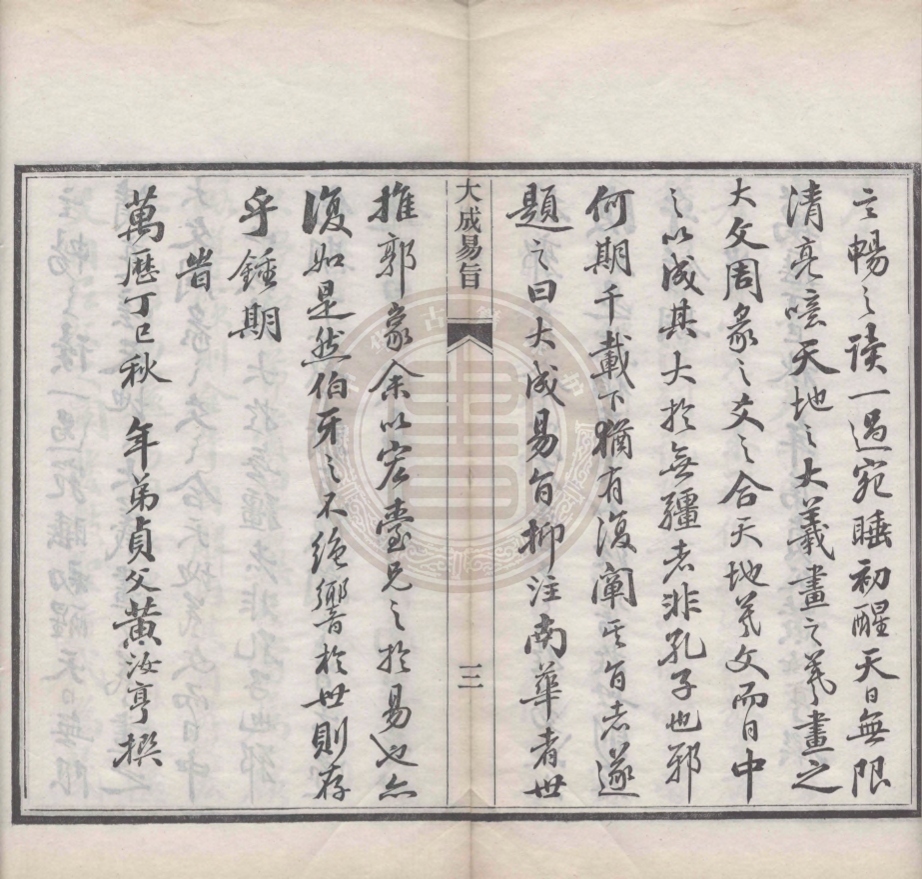 言暢之讀一過宛睡初醒天日無限
清亮噫天地之大羲畫之羲畫之
大文周彖之爻之合天地羲文而日中
之以成其大於無疆者非孔子也邪
何期千載下猶有復闡其旨者遂
題之曰大成易旨抑注南華者世
大成易旨
三
推郭象余以宏臺兄之於易也亦
復如是然伯牙之不絕響於世則存
乎鍾期
旹
萬曆丁巳秋 年弟貞父黃汝亨撰